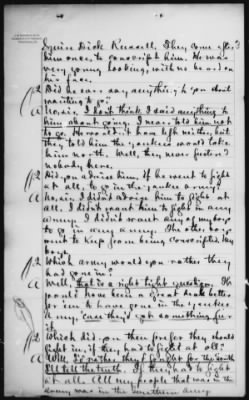 Squire Dick Russell. They come after
him once, to conscript him. He was
very young looking, with no beard on
his face.
Q Did he ever say anything to you about
wanting to go?
A No, sir. I don't think I said anything to
him about going. I never told him not
to go. He wanted to
they told him the yankees would take
him north. Well, they never pestered
nobody here.
Q Did you advise him, if he went to fight
at all, to go in the yankee army?
A No, sir, I didn't advise him to fight at
all. I didn't want him to fight in any
army. I didn't want any of my boys
to go in any army. The other boy
went to keep from being conscripted,
Q Which army would you rather they
had gone in?
A Well, that is a right tight question. It
would have been a great deal better
for me to have been in the yankee
army, 'cause they'd got something for
it.
Q Which did you then prefer they should
fight in, if they had to fight at all?
A Well, I'd rather they'd fought for the South
I'll tell the truth. If they had to fight
at all. All my people that was in the
army was in the southern army.